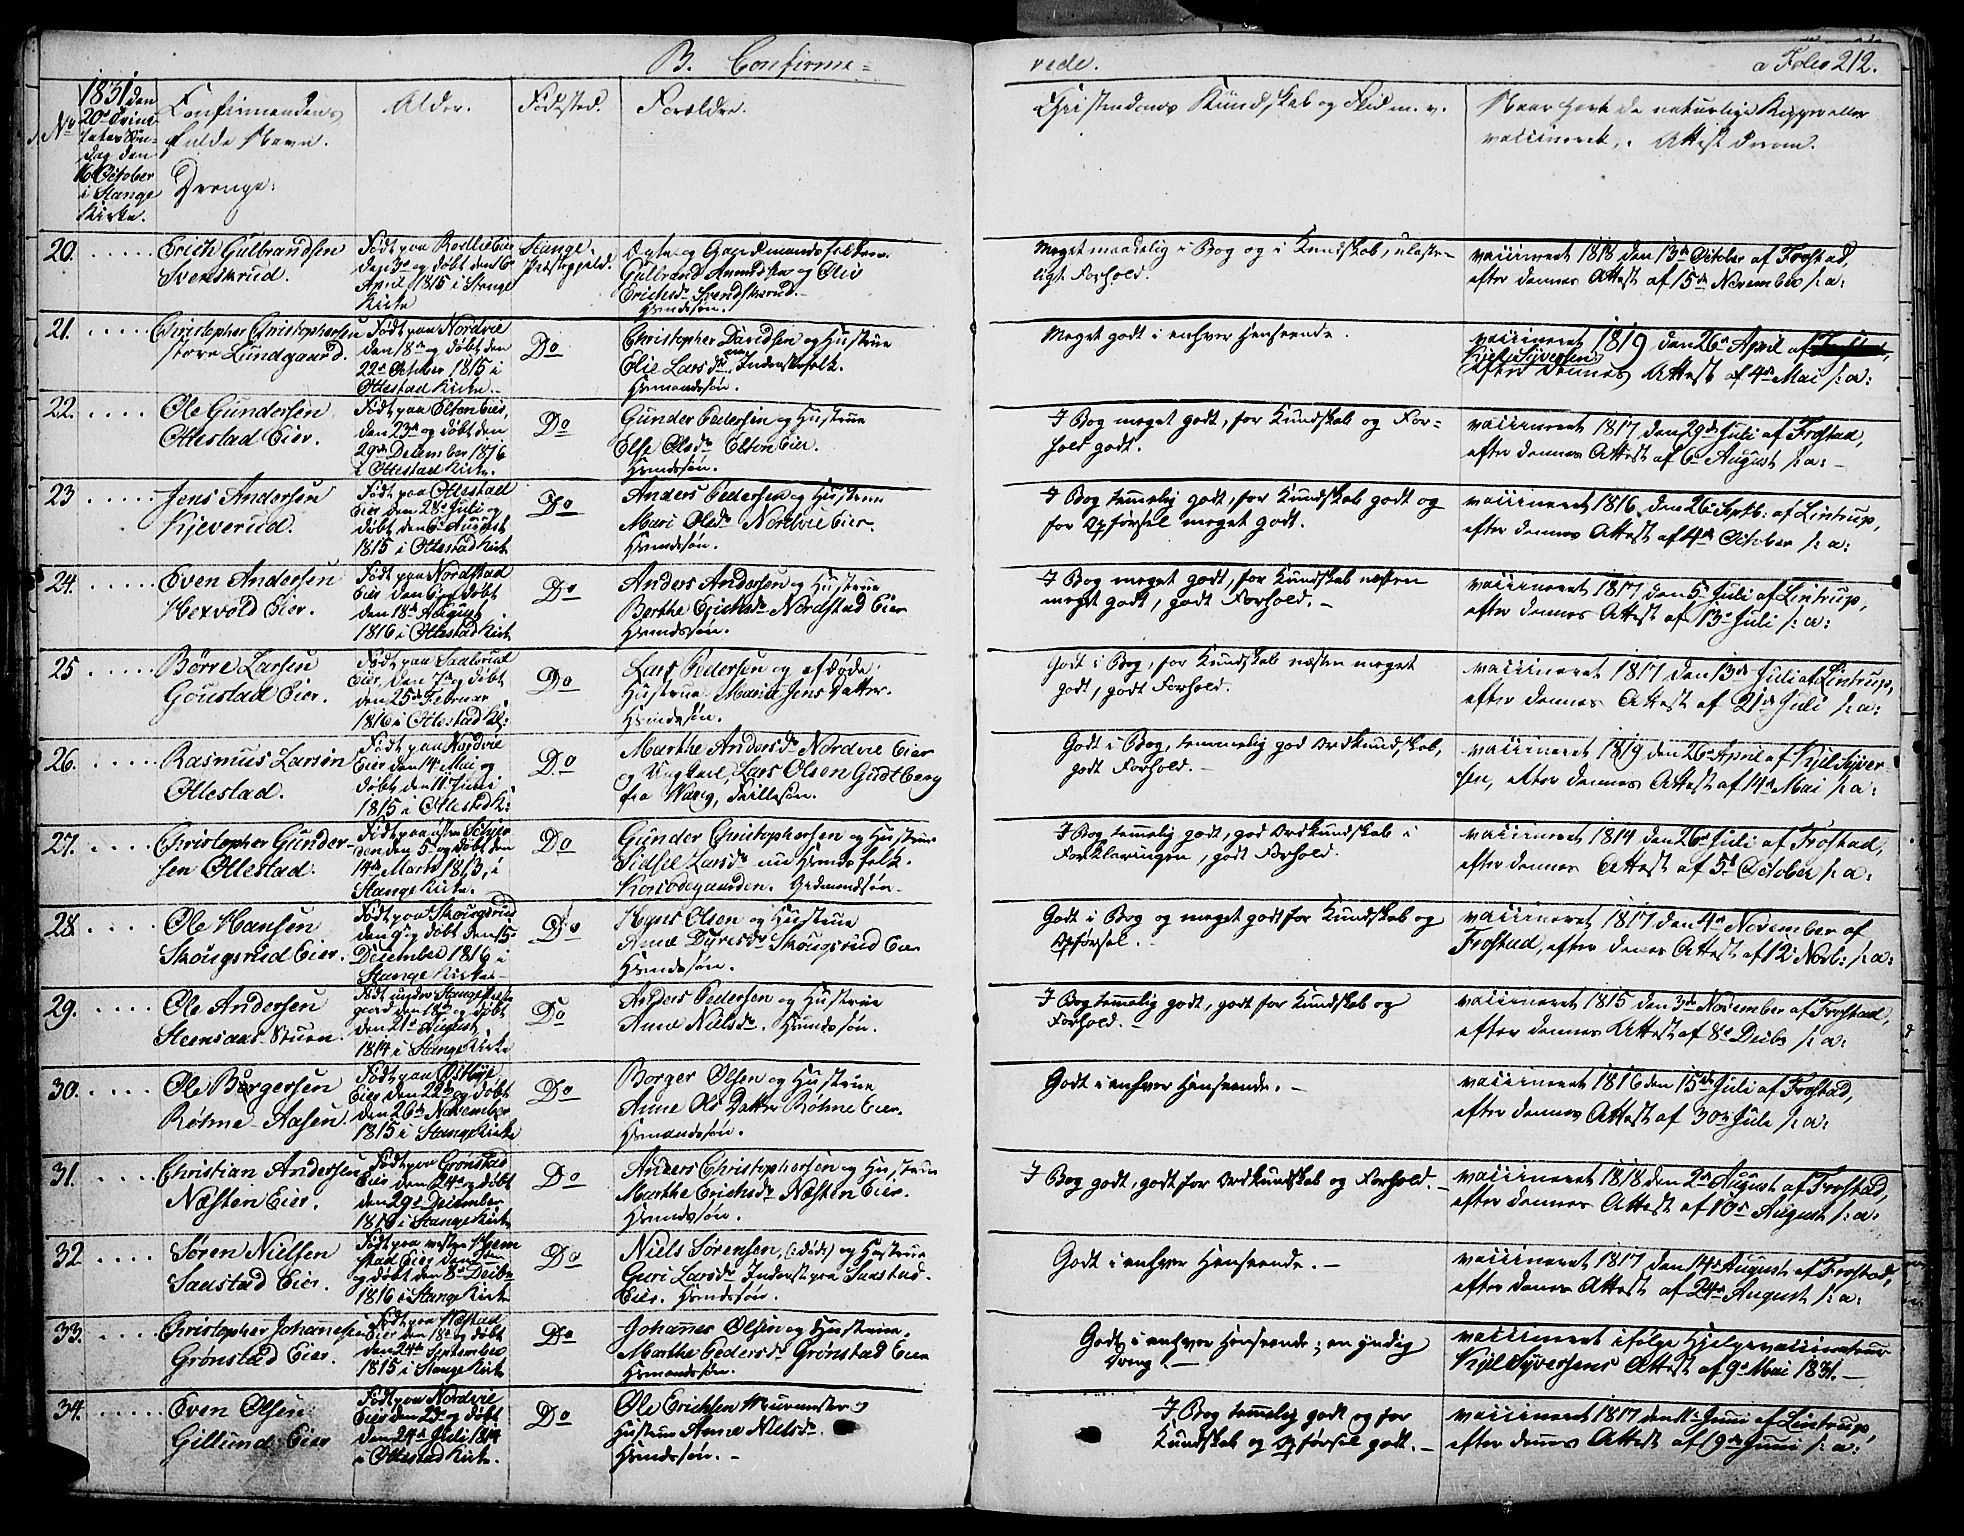 B. Confirme=
rede.
a Folio 212.
No
1831 den
20de Trini-
tatis Søn-
dag den
16 October
i Stange
Kirke.
Confirmandens
fulde Navn.
Drenge:
Alder.
Fødested.
Forældre.
Christendoms Kundskab og Flid m. v.
Naar havt de naturlige Kopper eller
vaccineret, Attest derom.
20.
Erich Gulbrandsen
Svenskrud.
Født paa
den 3de og døbt den 6te
April 1815 i Stange
Kirke
Stange
Præstegjeld.
Gulbrand Amundsen og Olia
Erichsdr Svendskrud.
Meget maadelig i Bog og i Kundskab, ulaste-
ligt Forhold.
vaccineret 1818 den 13de October af Frostad,
efter dennes Attest af 15de November s: a:
21.
Christopher Christophersen
store Lundgaard.
Født paa Nordvie
den 18de og døbt den
22de October 1815 i
Ottestad Kirke.
Do
Christopher Davidsen og Hustrue
Elie Larsdr, Inderstfolk.
Meget godt i enhver Henseende.
vaccineret 1819 den 26de April af
Kjeld Syversen
efter dennes Attest af 4de Mai s: a:
22.
Ole Gundersen
Ottestad Eier.
Født paa Elton Eier,
den 23de og døbt den
29de December 1816
i Ottestad Kirke.
Do
Gunder Pedersen og Hustrue
Else Olsdr Elton Eier.
I Bog meget godt, for Kundskab og For-
hold godt.
vaccineret 1817 den 29de Juli af Frostad,
efter dennes Attest af 6te August s: a:
23
Jens Andersen
Kjeverud.
Født paa Ottestad
Eier den 28de Juli og
døbt den 6te August
1815 i Ottestad Kirke
Do
Anders Pedersen og Hustrue
Mari Olsdr Nordvie Eier.
I Bog temmelig godt, for Kundskab godt og
for Opførsel meget godt.
vaccineret 1816 den 26de Septb: af Lintrup,
efter dennes Attest af 4de October s: a:
24.
Even Andersen
Hexvold Eier.
Født paa Nordstad
Eier den 6te og døbt
den 18de August
1816 i Ottestad Kirke
Do
Anders Andersen og Hustrue
Berthe Erichsdr Nordstad Eier
I Bog meget godt, for Kundskab næsten
meget godt, godt Forhold.
vaccineret 1817 den 5te Juli af Lintrup,
efter dennes Attest af 13de Juli s: a:
25
Børre Larsen
Goustad Eier.
Født paa Saalerud
Eier, den 7de og døbt
den 25de Februar
1816 i Ottestad K:
Do
Lars Pedersen og afdøde
Hustrue Marie Jens Datter.
Godt i Bog, for Kundskab næsten meget
godt, godt Forhold.
vaccineret 1817 den 13de Juli af Lintrup,
efter dennes Attest af 21de Juli s: a:
26.
Rasmus Larsen
Ottestad.
Født paa Nordvie
Eier den 14de Mai og
døbt den 11te Juni
1815 i Ottestad K:
Do
Marthe Andersdr Nordvie Eier
og Ungkarl, Lars Olsen Gudtberg
fra Wang,
Godt i Bog, temmelig god Ordkundskab,
godt Forhold.
vaccineret 1819 den 26de April af Kjel Syver-
sen, efter dennes Attest af 14de Mai s: a:
27.
Christopher Gunder-
sen Ottestad.
Født paa østre
den 5te og døbt den
14de Marts 1813, i
Stange Kirke.
Do
Gunder Christophersen og Hustrue
Sidsel Larsdr
Korsødegaarden.
I Bog temmelig godt, god Ordkundskab i
Forklaringen, godt Forhold.
vaccineret 1814 den 26de Juli af Frostad,
efter dennes Attest af 5te October s: a:
28.
Ole Hansen
Skougsrud Eier.
Født paa Skougsrud
den 9de og døbt den 15de
December 1816 i
Stange Kirke.
Do
Hans Olsen og Hustrue
Anne Dyresdr Skougsrud Eier
Godt i Bog og meget godt for Kundskab og
Opførsel.
vaccineret 1817 den 4de November af
Frostad, efter dennes Attest af 12te Novb: s: a:
29.
Ole Andersen
Steensaas-Stuen.
Født under Stange Præste
gaard den og døbt
den 21de August
1814 i Stange Kirke
Do
Anders Pedersen og Hustrue
Anne Nielsdr.
I Bog temelig godt, godt for Kundskab og
Forhold.
vaccineret 1815 den 3de November af Frostad,
efter dennes Attest af 8de Decbr s: a:
30.
Ole Borgersen
Røhne-Aasen.
Født paa
Eier den 22de og døbt
den 26de November
1815 i Stange Kirke
Do
Borger Olsen og Hustrue
Anne Ols Datter Røhne Eier.
Godt i enhver Henseende.
vaccineret 1816 den 15de Juli af Frostad,
efter dennes Attest af 30te Juli s: a:
31.
Christian Andersen
Næsten Eier.
Født paa Grønstad
Eier den 24de og døbt
den 29de December
1816 i Stange Kirke
Do
Anders Christophersen og Hustrue
Marthe Erichsdr Næsten Eier.
I Bog godt, godt for Ordkundskab og Forhold.
vaccineret 1818 den 2den August af Frostad,
efter dennes Attest af 10de August s: a:
32
Søren Nielsen
Saastad Eier.
Født paa vestre Hjem
stad Eie
og døbt den 8de Decbr
1816 i Stange Kirke
Do
Niels Sørensen, (: død :) og Hustrue
Guri Larsdr Inderst paa Saastad-
Eier.
Godt i enhver Henseende.
vaccineret 1817 den 14de August af Frostad,
efter dennes Attest af 24de August s: a:
33.
Christopher Johannesen
Grønstad Eier.
Født paa
Eier den 18de og døbt
den 24de September
1815 i Stange Kirke
Do
Johannes Olsen og Hustrue
Marthe Pedersdr Grønstad Eier
Godt i enhver Henseende; en yndig
Dreng.
vaccineret ifølge Hjelpevaccinateur
Kjel Syversens Attest af 9de Mai 1831.
34.
Even Olsen
Gillund Eier
Født paa Nordvie
Eier den 23de og døbt
den 24de Juli 1814
i Ottestad Kirke.
Do
Ole Erichsen Muurmester og
Hustrue Anne Nielsdr.
I Bog temmelig godt og for
Kundskab og Opførsel godt.
vaccineret 1817 den 1te Juni af Lintrup,
efter dennes Attest af 9de Juni s: a: